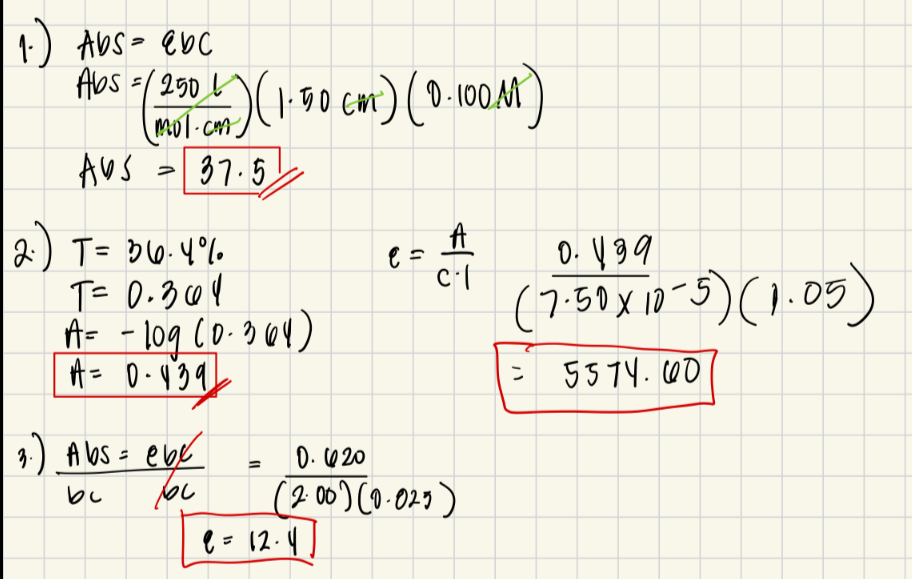 1.) Abs = ebc
Abs = (250 L / mol·cm) (1.50 cm) (0.100 M)
Abs = 37.5
2.) T = 36.4%
T = 0.364
A = -log (0.364)
A = 0.439
e = A / c·l
0.439 / (7.50 x 10-5)(1.05)
= 5574.60
3.) Abs = ebc / bc bc = 0.620 / (2.00)(0.025)
e = 12.4